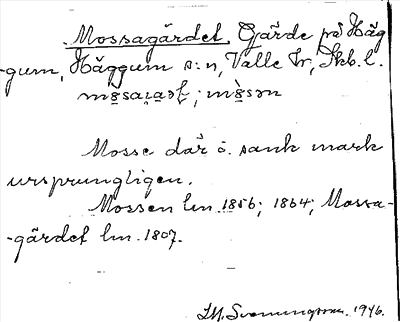 Mossagärdet, Gärde på Häg
-gum, Häggum s:n, Valle hr, Skb. l.
Mosse där o. sank mark
ursprungligen.
Mossen lm. 1856; 1864; Mossa-
-gärdet lm. 1807.
1946.